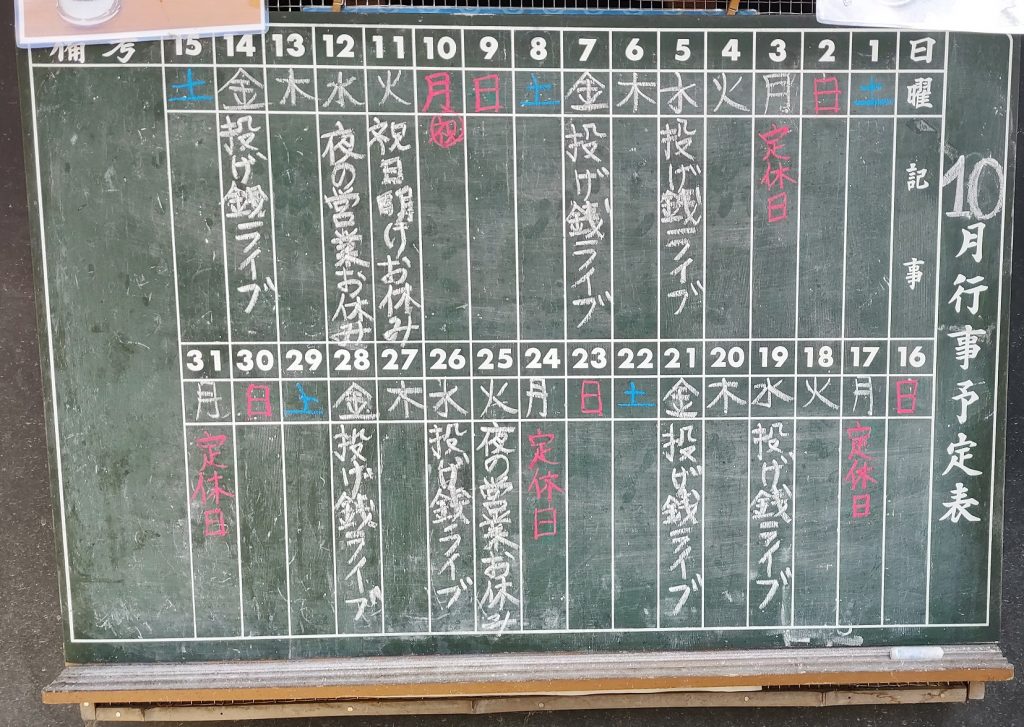 10月行事予定表
日 曜 記事
1 土
2 日
3 月 定休日
4 火
5 水 投げ銭ライブ
6 木
7 金 投げ銭ライブ
8 土
9 日
10 月 祝
11 火 祝日明けお休み
12 水 夜の営業お休み
13 木
14 金 投げ銭ライブ
15 土
備考
16 日
17 月 定休日
18 火
19 水 投げ銭ライブ
20 木
21 金 投げ銭ライブ
22 土
23 日
24 月 定休日
25 火 夜の営業お休み
26 水 投げ銭ライブ
27 木
28 金 投げ銭ライブ
29 土
30 日
31 月 定休日